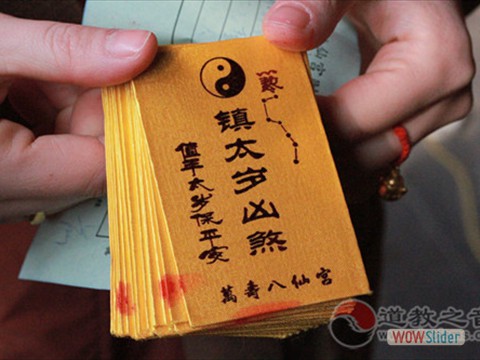 镇太岁凶煞
值年太岁保平安
萬壽八仙宮
道教之音
WOWSlider